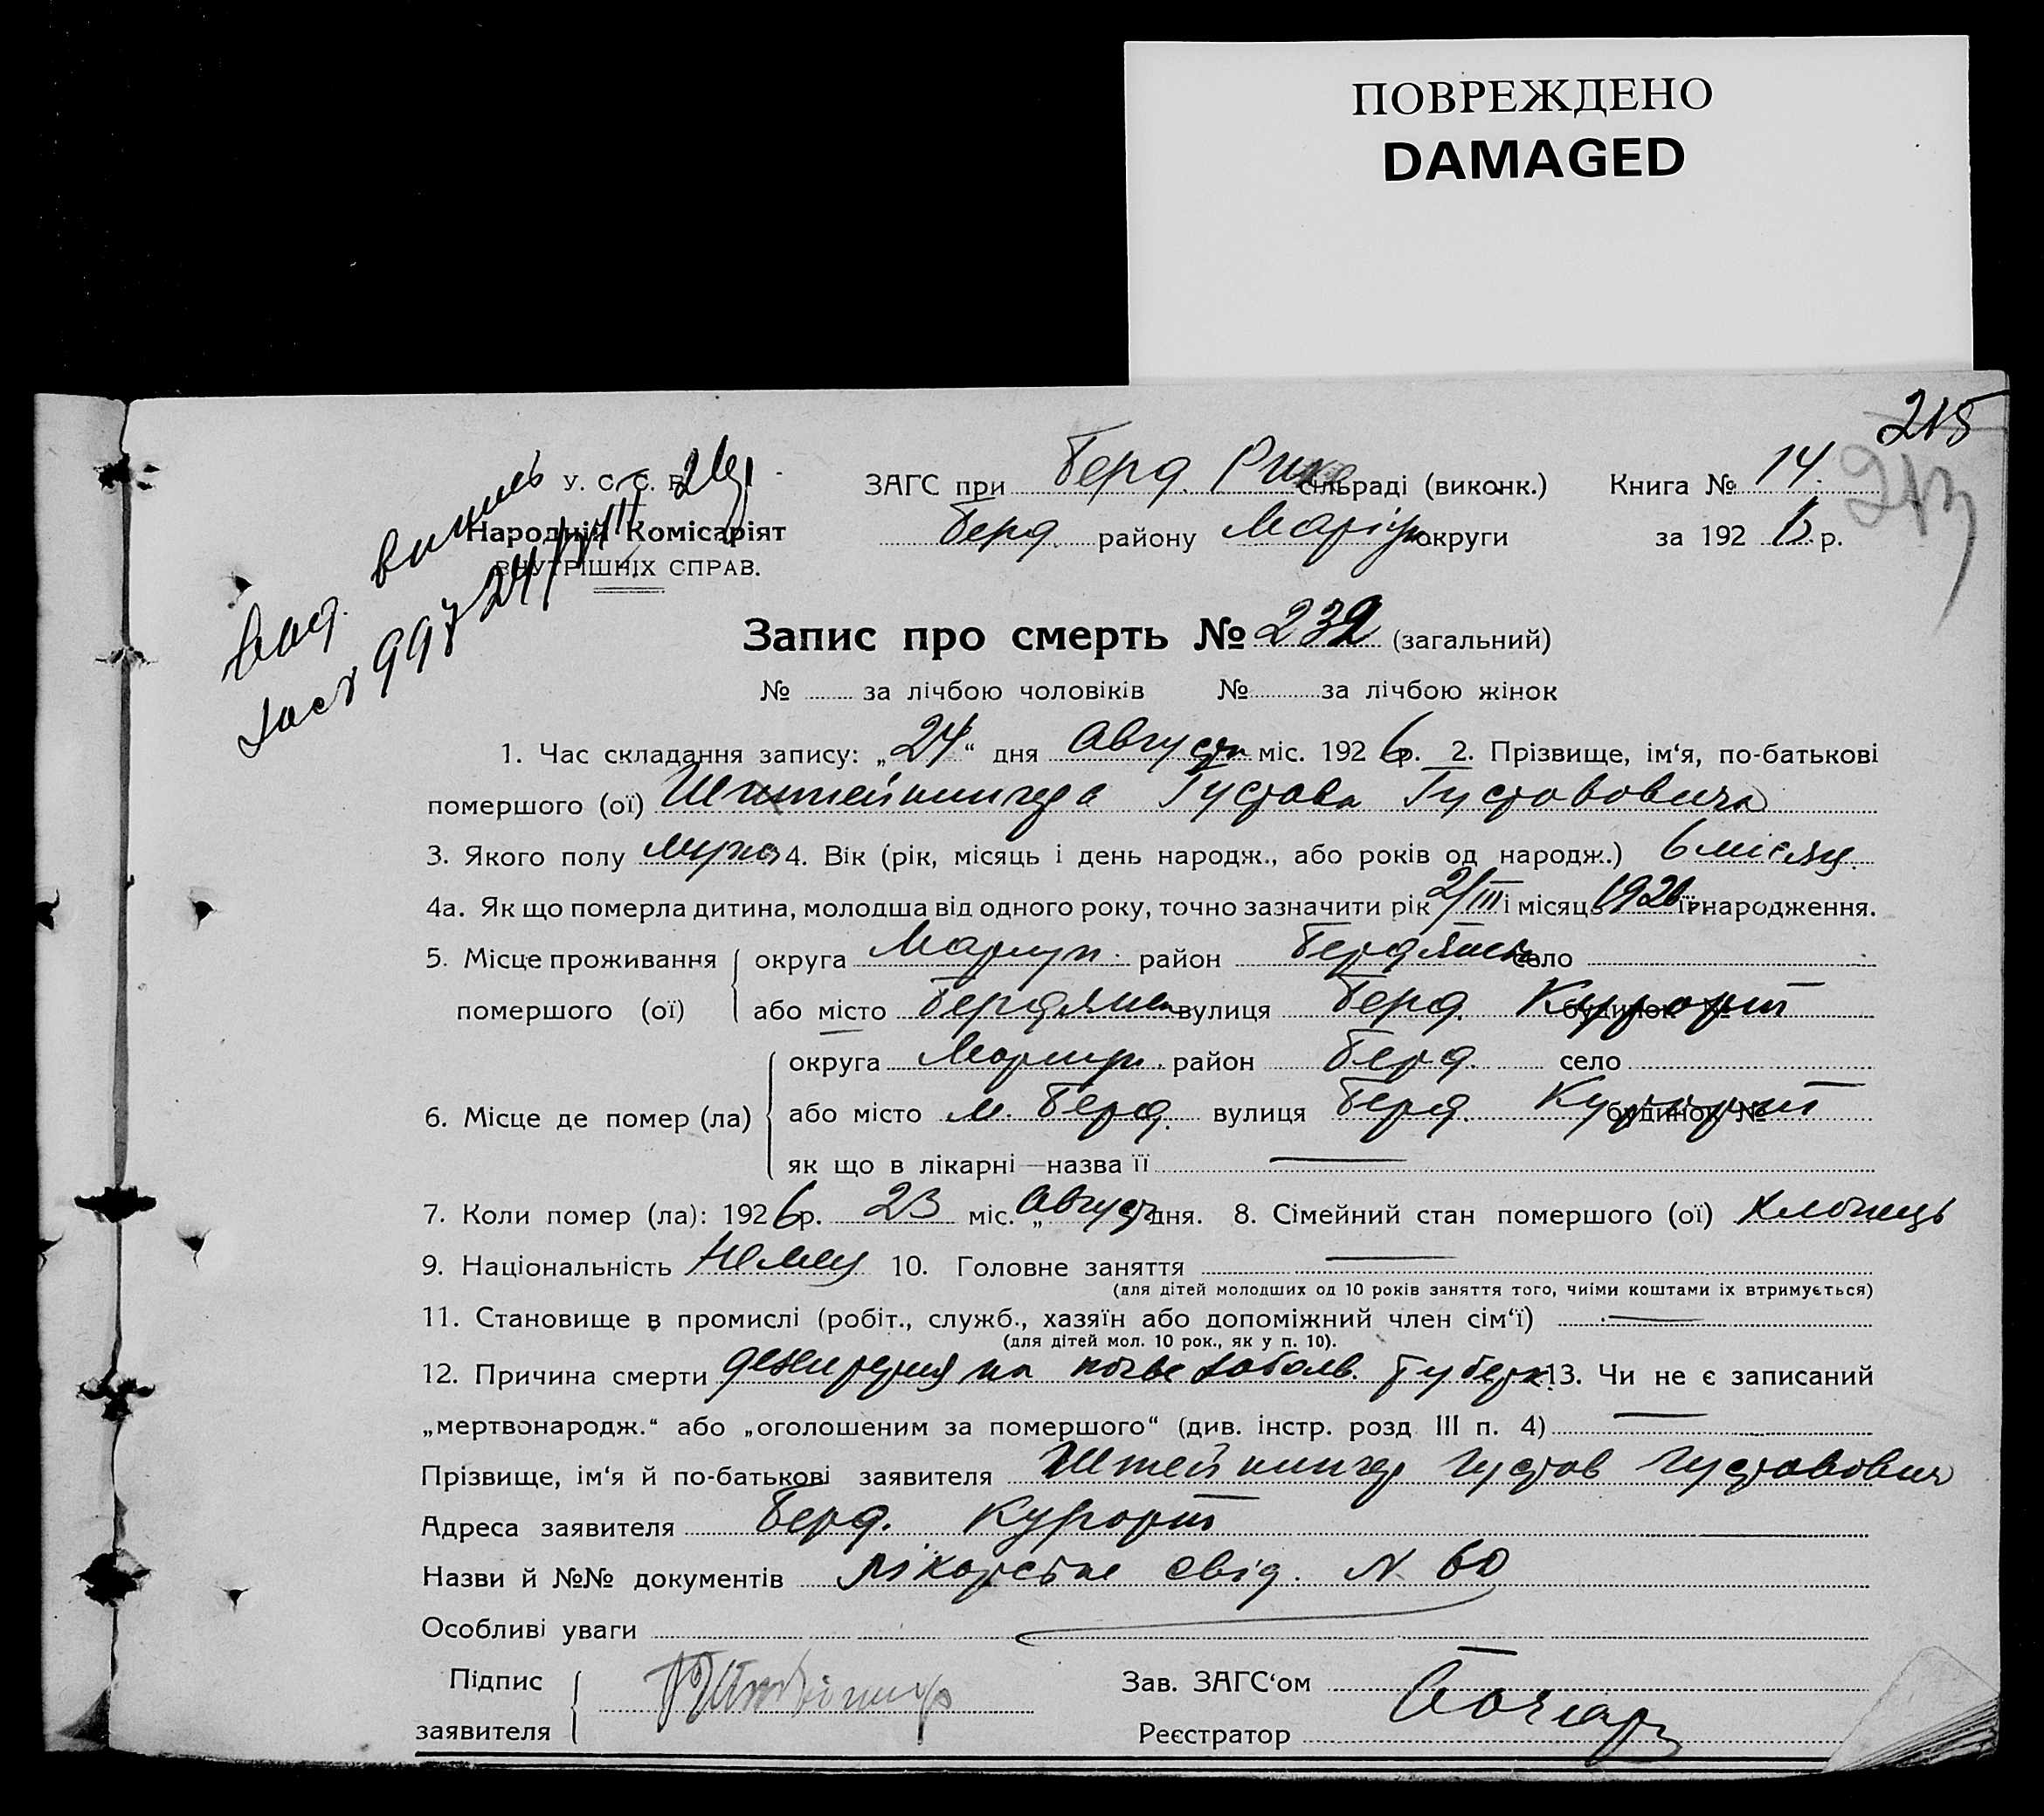 ПОВРЕЖДЕНО
DAMAGED
215
213
У. С. С. Р.
Народній Комісаріят
ВНУТРІШНІХ СПРАВ.
Вид. випись
997 24/VIII 26р
ЗАГС при Берд. Рика сільраді (виконк.) Книга № 14.
Берд. району Маріуп. округи за 192 р.
Запис про смерть № 232 (загальний)
№ за лічбою чоловіків № за лічбою жінок
1. Час складання запису: „24" дня августа міс. 1926 р. 2. Прізвище, ім'я, по-батькові
помершого (ої) Густава Густавовича
3. Якого полу муж 4. Вік (рік, місяць і день народж., або років од народж.) 6 місяц.
4а. Як що померла дитина, молодша від одного року, точно зазначити рік 2/III і місяць 1926 її народження.
5. Місце проживання округа Мариуп. район Бердянськ село
помершого (ої) або місто Бердянськ вулиця Берд. Курорт будинок №
округа Мариуп. район Берд. село
6. Місце де помер (ла) або місто м. Берд. вулиця Берд. Курорт будинок №
як що в лікарні—назва її —
7. Коли помер (ла): 1926 р. 23 міс. „август дня. 8. Сімейний стан помершого (ої) хлопець
9. Національність Немец 10. Головне заняття —
(для дітей молодших од 10 років заняття того, чиїми коштами їх втримується)
11. Становище в промислі (робіт., служб., хазяїн або допоміжний член сім'ї) —
(для дітей мол. 10 рок., як у п. 10).
12. Причина смерти на почве заболв. туберк. 13. Чи не є записаний
„мертвонародж." або „оголошеним за помершого" (див. інстр. розд III п. 4) —
Прізвище, ім'я й по-батькові заявителя Густав Густавович
Адреса заявителя Берд. Курорт
Назви й №№ документів лікарське свід. N 60
Особливі уваги
Підпис
заявителя
Зав. ЗАГС'ом
Реєстратор